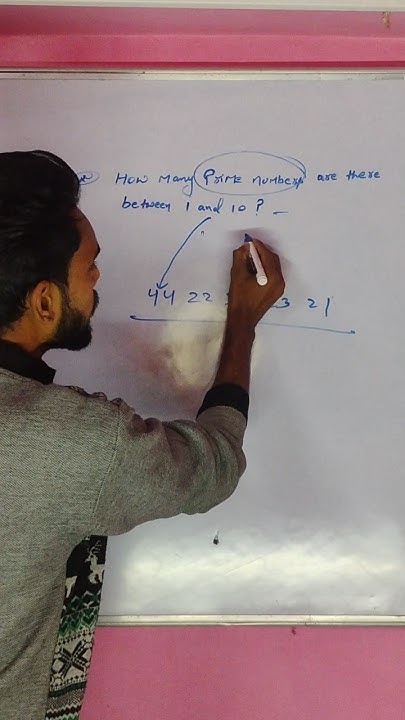 How Many Prime numbers are there
between 1 and 10 ?
44 22 3 21